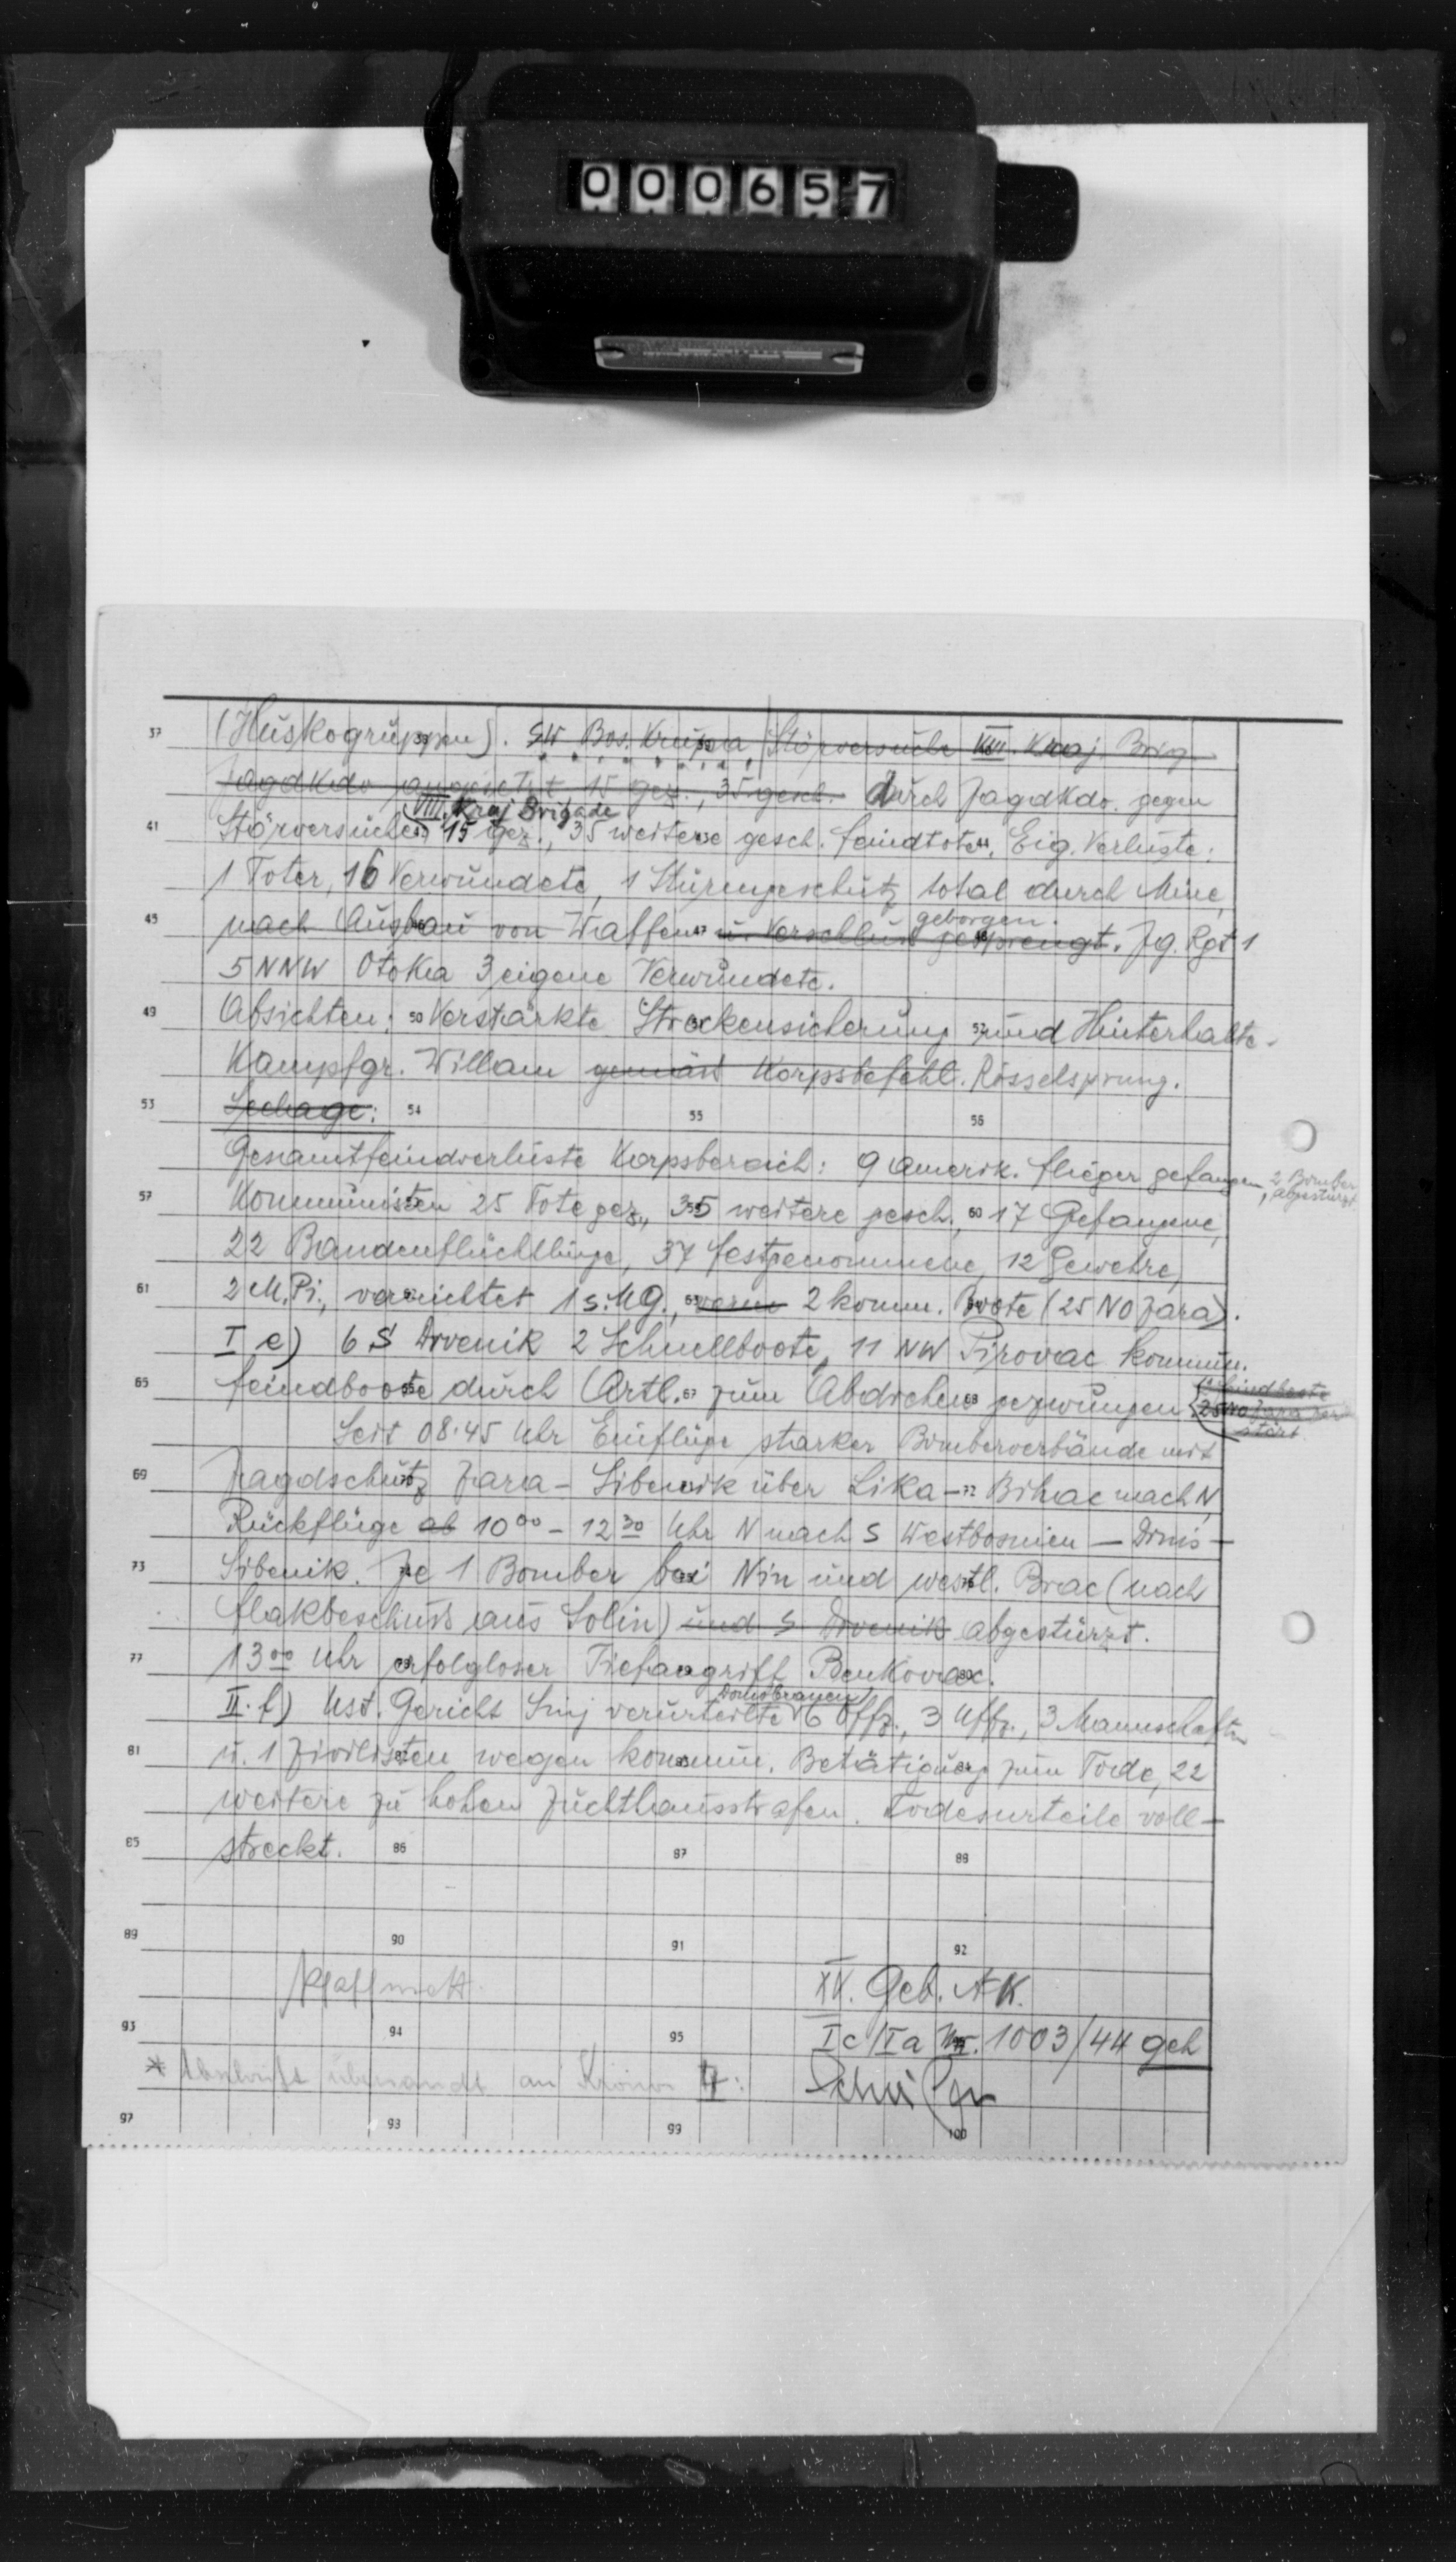 000657
37 (Huskogruppen). SW Bos. Krupa Störversuche XIII. Kraj. Brig.
Jagdkdo angesetzt 15 gez., 35 gesch. durch Jagdkdo. gegen
VIII. Kraj Brigade
41 Störversuche 15 gez., 35 weitere gesch. Feindtote. Eig. Verluste:
1 Toter, 16 Verwundete, 1 Sturmgeschütz total durch Mine,
geborgen.
45 nach Ausbau von Waffen 47 u. Verschluss gesprengt. Jg. Rgt 1
5 NNW Otoka 3 eigene Verwundete.
49 Absichten: 50 Verstärkte Streckensicherung 52 und Hinterhalte.
Kampfgr. Willam gemäss Korpsbefehl. Rösselsprung.
53 54 55 56
Gesamtfeindverluste Korpsbereich: 9 amerik. Flieger gefangen, 2 Bomber abgestürzt
57 Kommunisten 25 Tote gez., 35 weitere gesch., 60 17 Gefangene,
22 Bandenflüchtlinge, 37 Festgenommene, 12 Gewehre,
61 2 M.Pi., vernichtet 1 s.MG., 2 komm. Boote (25 NO Zara).
I e) 6 S Drvenik 2 Schnellboote, 11 NW Pirovac kommun.
65 Feindboote durch Artl. 67 zum Abdrehen 68 gezwungen
25 NO Zara zerstört
Seit 08.45 Uhr Einflüge starker Bomberverbände mit
69 Jagdschutz Zara - Sibenik über Lika - 72 Bihac nach N
Rückflüge ab 10⁰⁰ - 12³⁰ Uhr N nach S Westbosnien - Drnis -
73 Sibenik. Je 1 Bomber bei Nin und westl. Brac (nach
Flakbeschuss aus Solin) und S Drvenik abgestürzt.
77 13⁰⁰ Uhr erfolgloser Tiefangriff Benkovac.
Domobranen
II. f) Ust. Gericht Sinj verurteilte 6 Offz., 3 Uffz., 3 Mannschaften
81 u. 1 Zivilisten wegen kommun. Betätigung zum Tode, 22
weitere zu hohen Zuchthausstrafen. Todesurteile voll-
85 streckt. 86 87 88
89 90 91 92
XV. Geb. A.K.
93 94 95 Ic/Ia Nr. 1003/44 geh
* Abschrift übersandt an
97 93 99 100